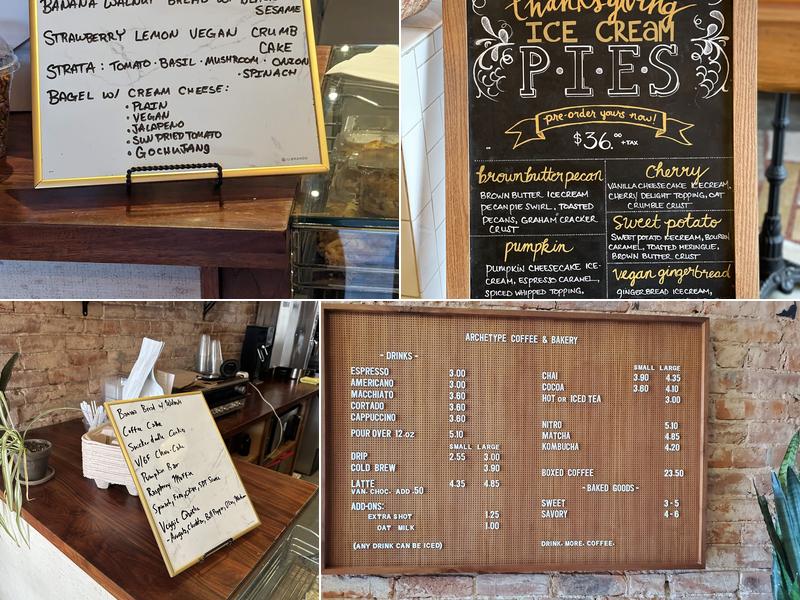 BANANA WALNUT BREAD W/ BLACK
SESAME
STRAWBERRY LEMON VEGAN CRUMB
CAKE
STRATA: TOMATO · BASIL · MUSHROOM · ONION
· SPINACH
BAGEL W/ CREAM CHEESE:
• PLAIN
• VEGAN
• JALAPEÑO
• SUN DRIED TOMATO
• GOCHUJANG
U BRANDS
Thanksgiving
ICE CREAM
P·I·E·S
pre-order yours now!
$36.00 +TAX
brown butter pecan
BROWN BUTTER ICECREAM
PECAN PIE SWIRL, TOASTED
PECANS, GRAHAM CRACKER
CRUST
pumpkin
PUMPKIN CHEESECAKE ICE-
CREAM, ESPRESSO CARAMEL,
SPICED WHIPPED TOPPING,
Cherry
VANILLA CHEESECAKE ICECREAM,
CHERRY DELIGHT TOPPING, OAT
CRUMBLE CRUST
Sweet potato
SWEET POTATO ICECREAM, BOURBON
CARAMEL, TOASTED MERINGUE,
BROWN BUTTER CRUST
vegan gingerbread
GINGERBREAD ICECREAM,
Banana Bread w/ Walnuts
Coffee Cake
Snickerdoodle Cookie
V/GF Choc. Cake
Pumpkin Bar
Raspberry Muffin
Veggie Quiche
ARCHETYPE COFFEE & BAKERY
- DRINKS -
ESPRESSO 3.00
AMERICANO 3.00
MACCHIATO 3.60
CORTADO 3.60
CAPPUCCINO 3.60
POUR OVER 12oz 5.10
SMALL LARGE
DRIP 2.55 3.00
COLD BREW 3.90
LATTE 4.35 4.85
VAN. CHOC. ADD .50
ADD-ONS:
EXTRA SHOT 1.25
OAT MILK 1.00
(ANY DRINK CAN BE ICED)
SMALL LARGE
CHAI 3.90 4.35
COCOA 3.60 4.10
HOT OR ICED TEA 3.00
NITRO 5.10
MATCHA 4.85
KOMBUCHA 4.20
BOXED COFFEE 23.50
-BAKED GOODS-
SWEET 3-5
SAVORY 4-6
DRINK. MORE. COFFEE.